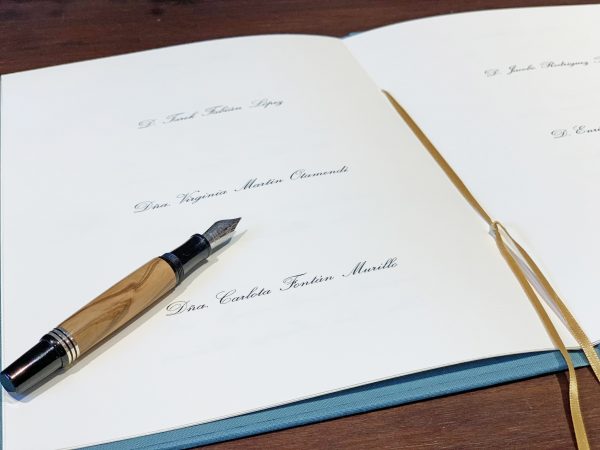 D. Tarek Fabián López
Dña. Virginia Martín Otamendi
Dña. Carlota Fontán Murillo
D. Jacobo Rodríguez
D. Enri